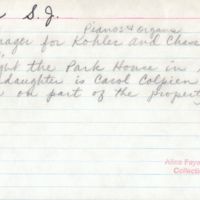 S. J.
Pianos & Organs
ager for Kohler and Chase
ght the Park House in
daughter is Carol Colpien
on part of the property
Alice Faye
Collecti